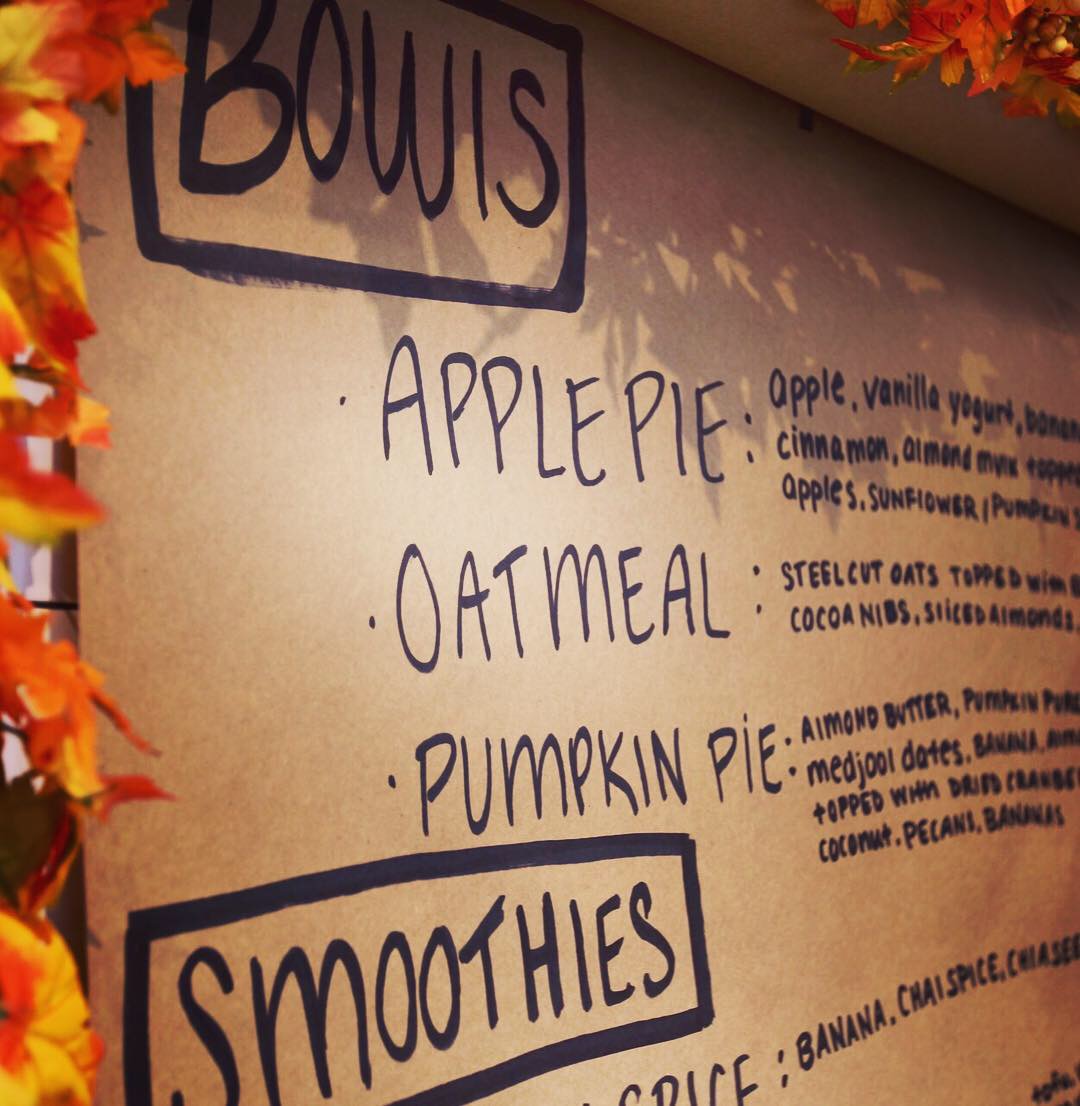 BOWlS
· APPLE PIE: apple, vanilla yogurt,
cinnamon, almond milk
apples, SUNFLOWER / PUMPKIN
· OATMEAL : STEELCUT OATS TOPPED with
COCOA NIBS, SliCED Almonds,
· PUMPKIN PiE: AlMOND BUTTER, PUMPKIN
medjool dates, BANANA,
tOPPED with DRIED
coconut, PECANS, BANANAS
SmOOTHIES
SPICE : BANANA, CHAI SPICE,
tofu,